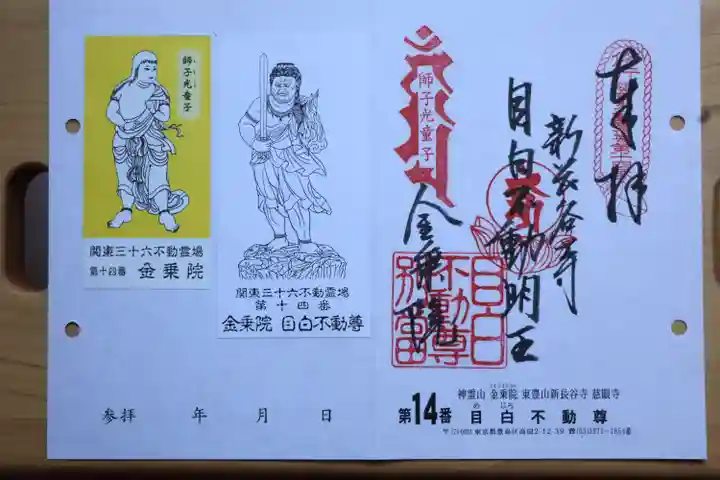 師子光童子
関東三十六不動霊場
第十四番 金乗院
関東三十六不動霊場
第十四番
金乗院 目白不動尊
参拝 年 月 日
奉拝
新長谷寺
目白不動明王
師子光童子
金乗院
目白
不動尊
別當
神霊山 金乗院 東豊山新長谷寺 慈眼寺
第14番 目白不動尊
めじろ